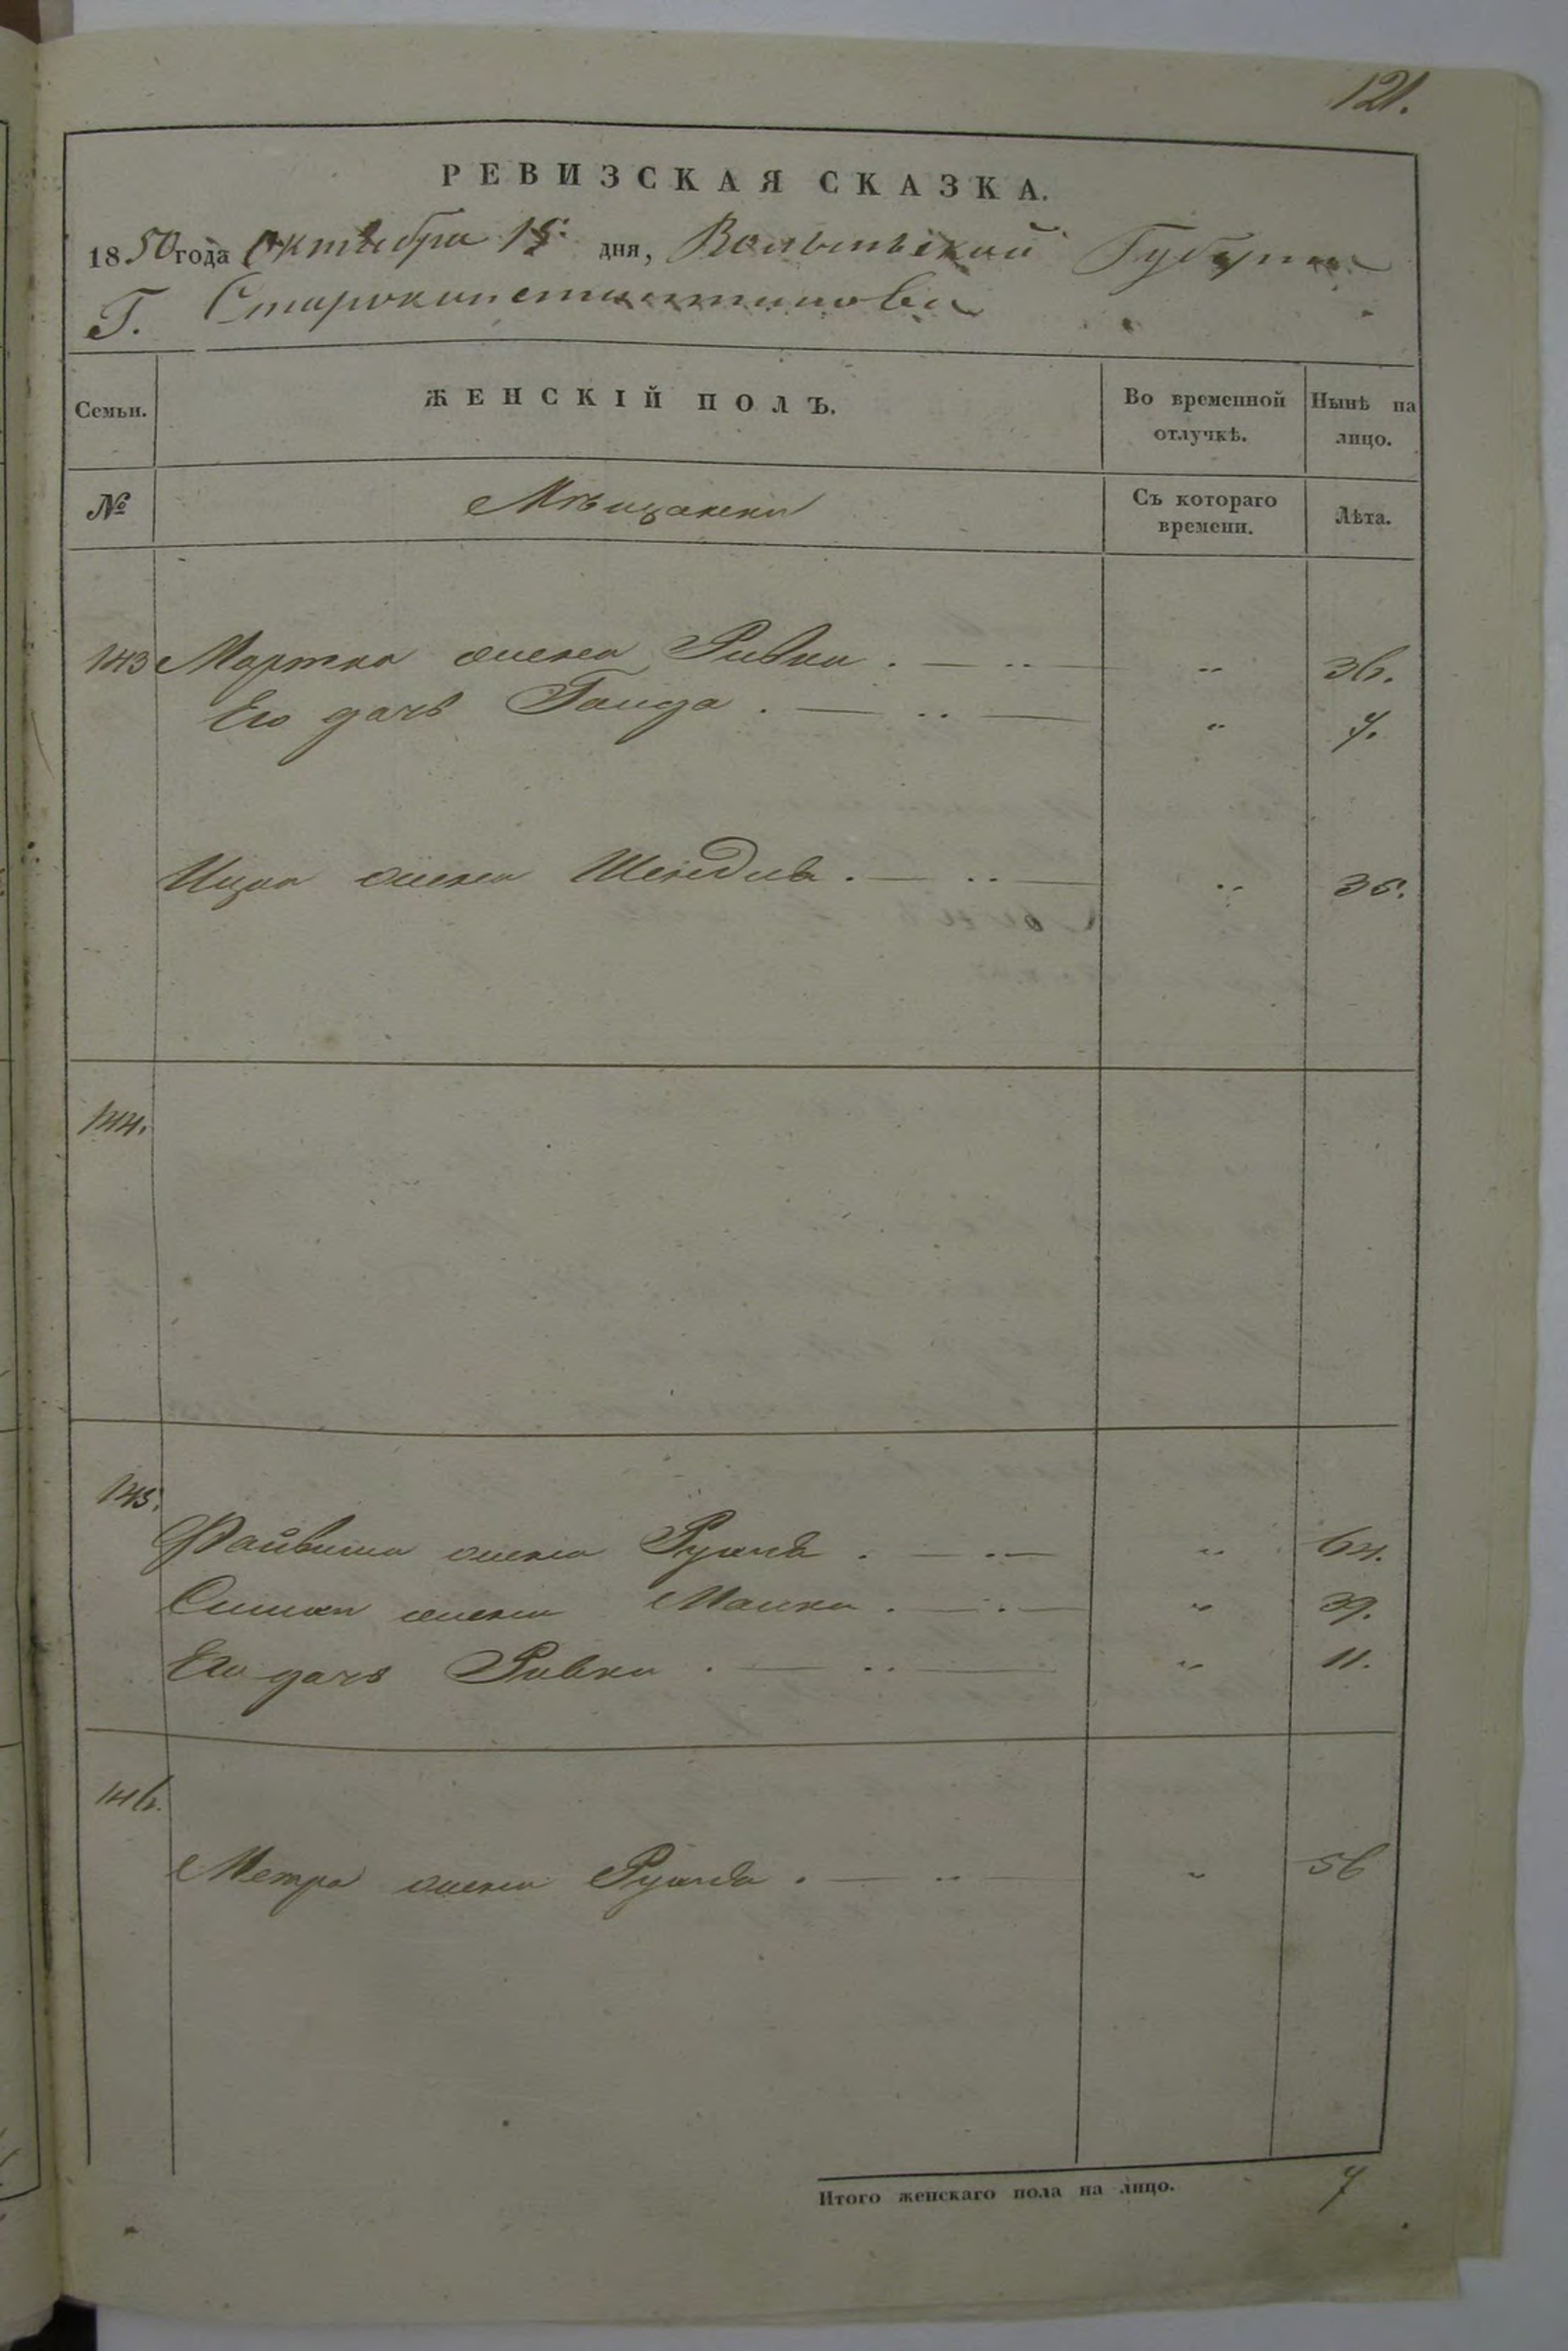 121.
РЕВИЗСКАЯ СКАЗКА.
1850 года Октября 15 дня, Волынской Губернии
Г. Староконстантинова
Семьи. ЖЕНСКІЙ ПОЛЪ. Во временной отлучкѣ. Нынѣ на лицо.
№ Мѣщански Съ котораго времени. Лѣта.
143 Мортка жена Ривка . — .. — .. 36.
Его дочь Гольда . — .. — .. 7.
Ицка жена Шейдля . — .. — .. 35.
144.
145.
Файвиша жена Рухля . — .. — .. 64.
жена Малка . — .. — .. 39.
Его дочь Ривка . — .. — .. 11.
146.
жена Рухля . — .. — .. 56
Итого женскаго пола на лицо. 7